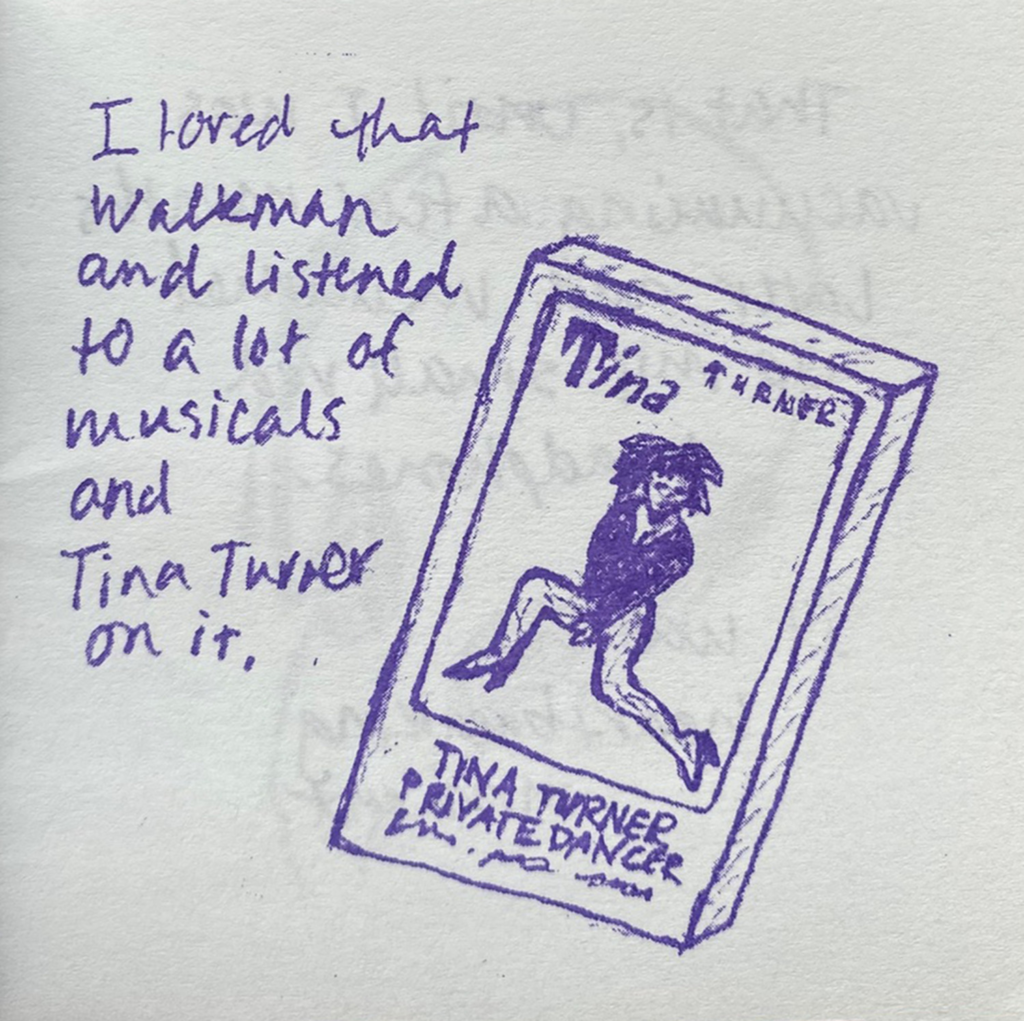 I loved that
Walkman
and listened
to a lot of
musicals
and
Tina Turner
on it.
Tina TURNER
TINA TURNER
PRIVATE DANCER